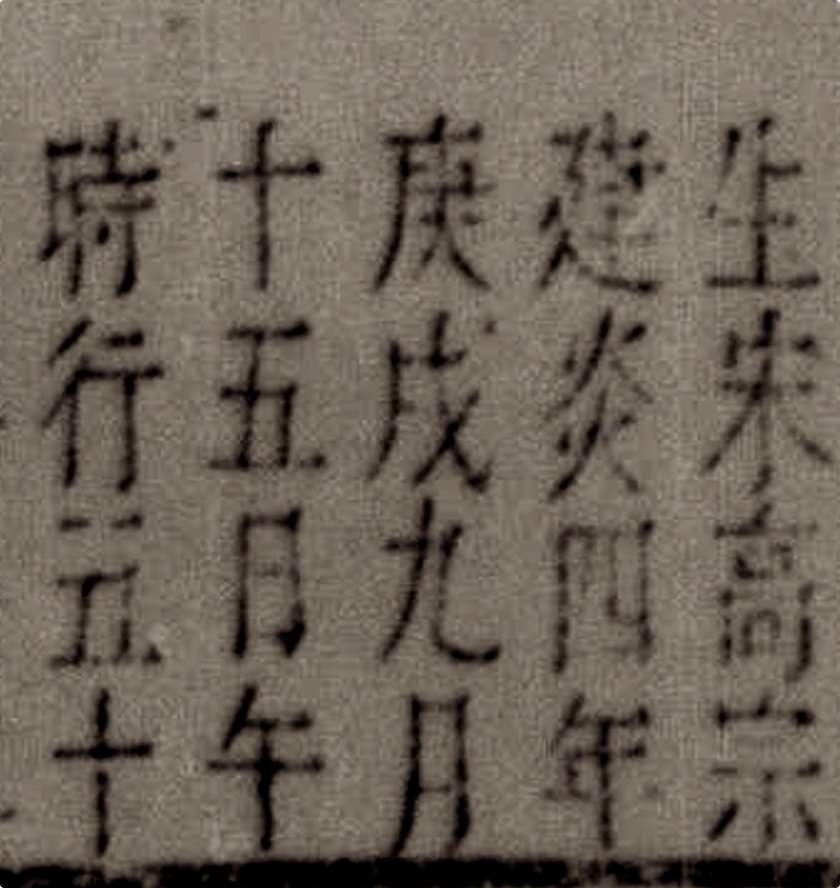 生宋高宗
建炎四年
庚戌九月
十五日午
時行五十